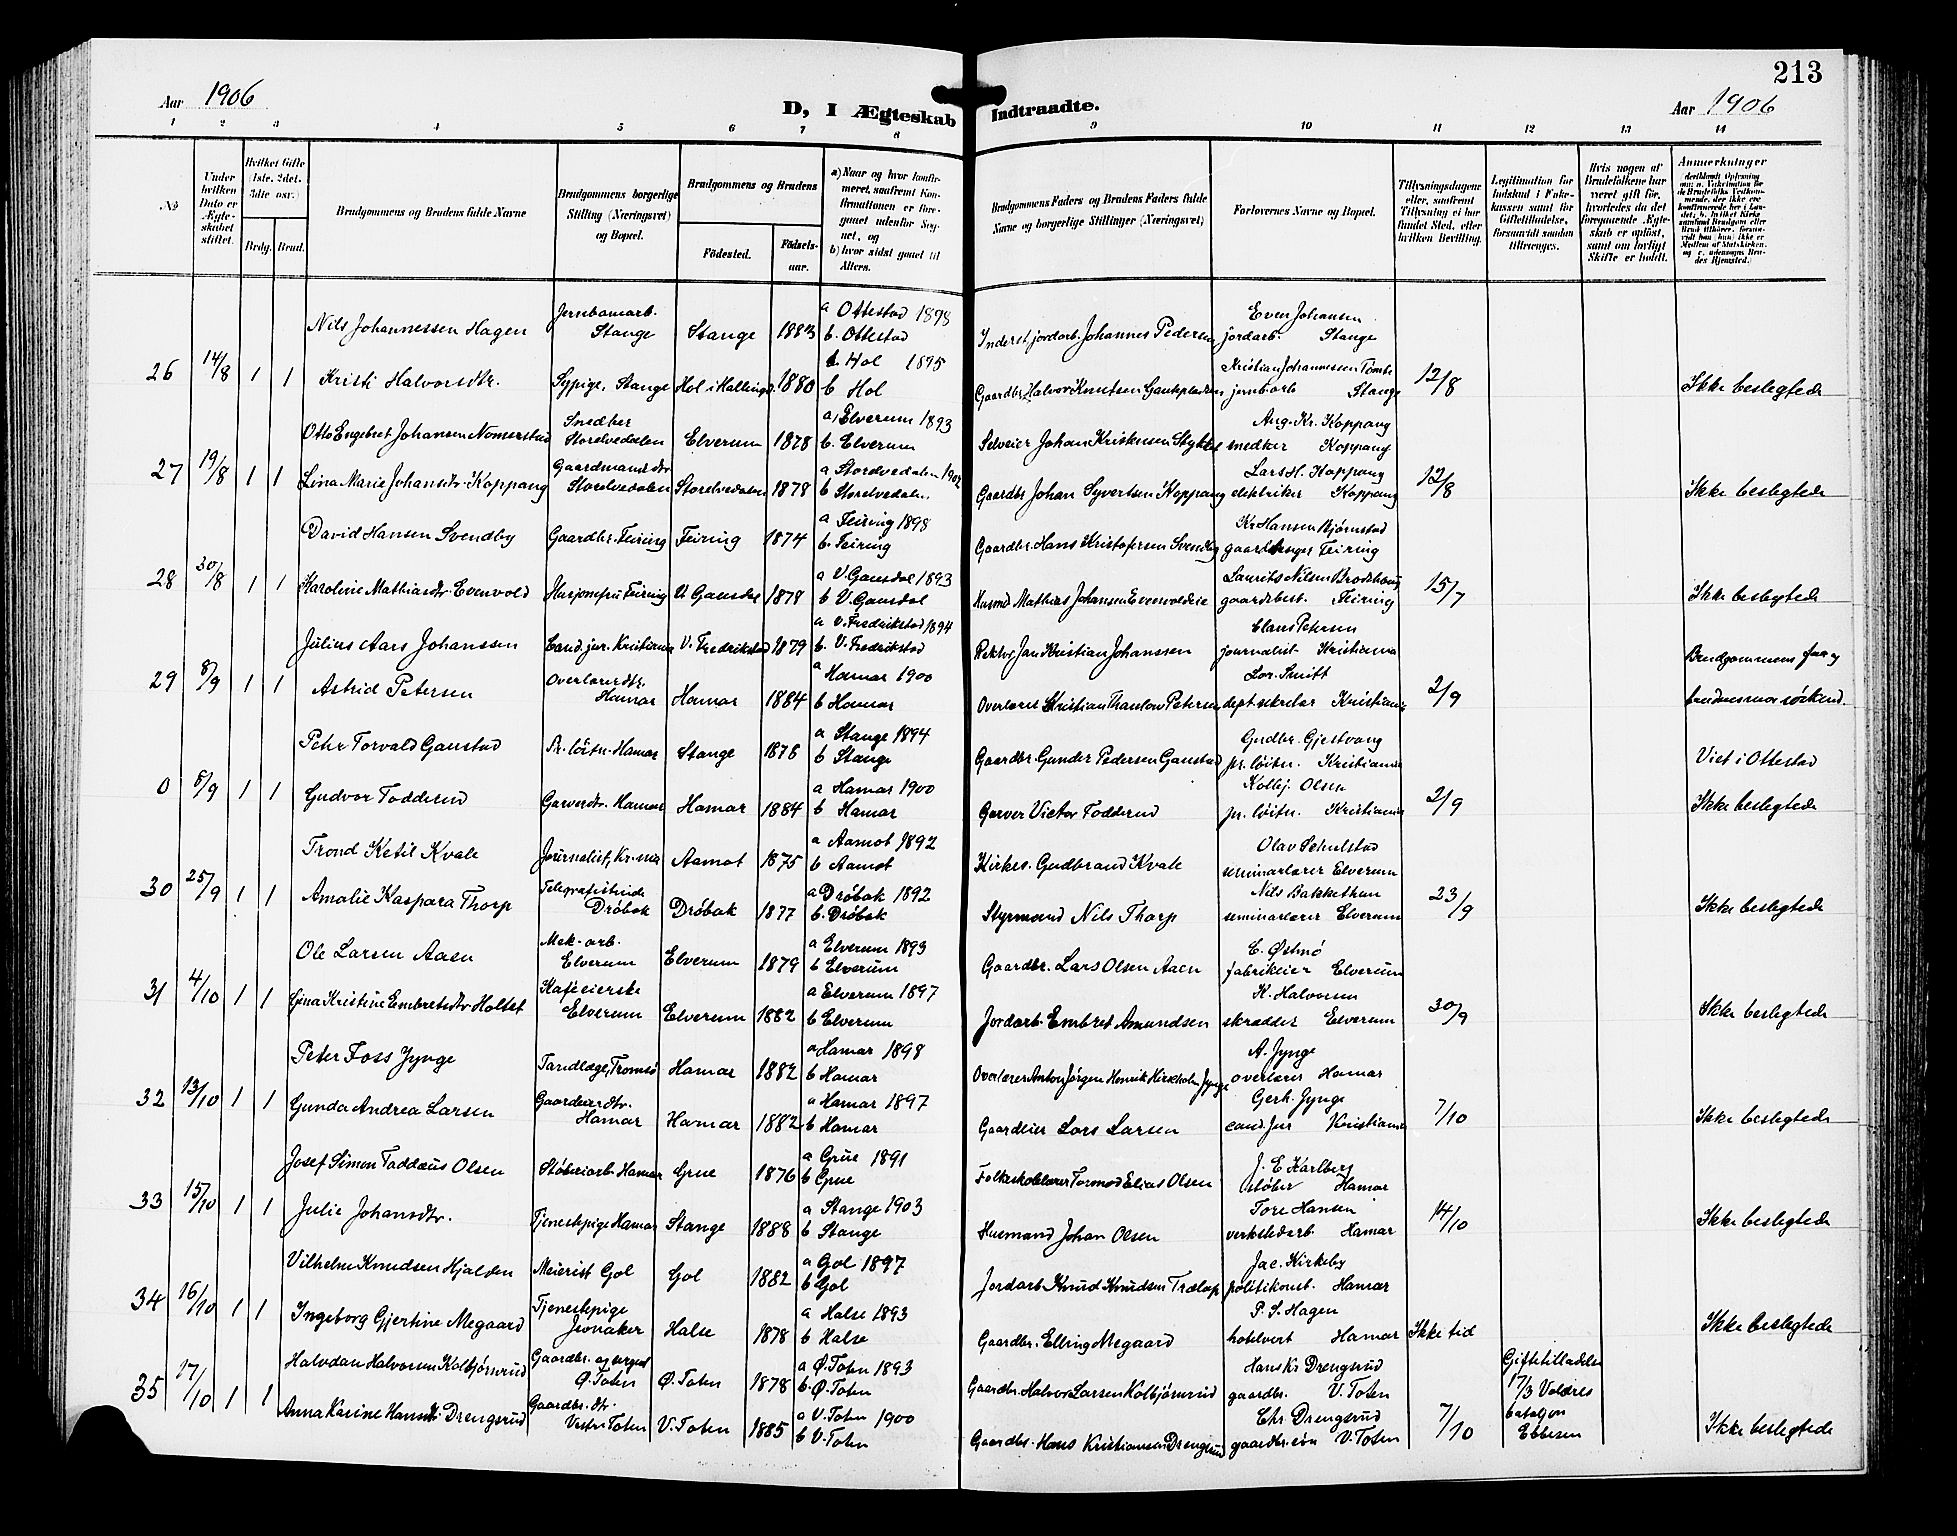 213
Aar 1906
D, I Ægteskab Indtraadte.
Aar 1906
1 2 3 4 5 6 7 8 9 10 11 12 13 14
№
Under hvilken Dato er Ægteskabet stiftet.
Hvilket Gifte (1ste, 2det, 3die osv.)
Brdg. Brud.
Brudgommens og Brudens fulde Navne
Brudgommens borgerlige Stilling (Næringsvei) og Bopæl.
Brudgommens og Brudens
Fødested.
Fødselsaar.
a) Naar og hvor konfirmeret, saafremt Konfirmationen er foregaaet udenfor Sognet, og
b) hvor sidst gaaet til Alters.
Brudgommens Faders og Brudens Faders fulde Navne og borgerlige Stillinger (Næringsvei)
Forlovernes Navne og Bopæl.
Tillysningsdagene eller, saafremt Tillysning ei har fundet Sted, efter hvilken Bevilling.
Legitimation for Indskud i Enkekassen samt for Giftetilladelse, forsaavidt saadan tiltrænges.
Hvis nogen af Brudefolkene har været gift før, hvorledes da det foregaaende Ægteskab er opløst, samt om lovligt Skifte er holdt.
Anmerkninger
Nils Johannessen Hagen Jernbanearb. Stange Stange 1883 a Ottestad 1898 b. Ottestad Inderst, jordarb. Johannes Pedersen Even Johansen jordarb. Stange
26 14/8 1 1 Kristi Halvorsdtr. Sypige, Stange Hol i Hallingd. 1880 a Hol 1895 b Hol Gaardbr. Halvor Knutsen Kristian Johannessen Tømte jernbarb Stange 12/8 Ikke beslegtede
Otto Engebret Johansen Nomerstad Snedker Storelvedalen Elverum 1878 a, Elverum 1893 b. Elverum Selveier Johan Kristensen Aug. Kr. Koppang snedker Koppang
27 19/8 1 1 Lina Marie Johansdtr. Koppang Gaardmandsdtr Storelvedalen Storelvedalen 1878 a Storelvedalen 1902 b Storelvedalen. Gaardbr Johan Syvertsen Koppang Lars H. Koppang elektriker Koppang 12/8 Ikke beslegtede
David Hansen Svendby Gaardbr. Feiring Feiring 1874 a Feiring 1898 b. Feiring Gaardbr. Hans Kristofersen Svendby Kr. Hansen Bjørnstad Feiring
28 30/8 1 1 Karoline Mathiasdtr. Evenvold Husjomfru Feiring V. Gausdal 1878 a V. Gausdal 1893 b V. Gausdal Husmd Mathias Johansen Evenvoldeie Laurits Nilsen Brodshaug gaardbest. Feiring 15/7 Ikke beslegtede
Julius Aars Johanssen Cand. jur. Kristiania V. Fredrikstad 1879 a V. Fredrikstad 1894 b. V. Fredrikstad Rektor Jan Kristian Johanssen Claus Petersen journalist Kristiania
29 8/9 1 1 Astrid Petersen Overlærerdtr. Hamar Hamar 1884 a Hamar 1900 b Hamar Overlærer Kristian Thaulow Petersen Lor. Smitt dept sekretær Kristiania 2/9 Brudgommens far og brudens mor søskend.
Peter Torvald Gaustad Pr. løitn. Hamar Stange 1878 a Stange 1894 b Stange Gaardbr. Gunder Pedersen Gaustad Gudbr. Gjestvang pr. løitn. Kristiania Viet i Ottestad
0 8/9 1 1 Gudvor Todderud Garverdtr. Hamar Hamar 1884 a Hamar 1900 b Hamar Garver Victor Todderud Kolbj. Olsen pr. løitn. Kristiania 2/9 Ikke beslegtede
Trond Ketil Kvale Journalist, Kr.nia Aamot 1875 a Aamot 1892 b Aamot Kirkes. Gudbrand Kvale Olav Schulstad seminarlærer Elverum
30 25/9 1 1 Amalie Kaspara Thorp Telegrafistinde Drøbak Drøbak 1877 a Drøbak 1892 b. Drøbak Styrmand Nils Thorp Nils Bakkethun seminarlærer Elverum 23/9 Ikke beslegtede
Ole Larsen Aaen Mek. arb. Elverum Elverum 1879 a Elverum 1893 b Elverum Gaardbr. Lars Olsen Aaen E. Østmo fabrikeier Elverum
31 4/10 1 1 Gina Kristine Embretsdtr Holtet Kafeeierske Elverum Elverum 1882 a Elverum 1897 b Elverum Jordarb. Embret Amundsen K. Halvorsen skrædder Elverum 30/9 Ikke beslegtede
Peter Foss Jynge Tandlæge, Tromsø Hamar 1882 a Hamar 1898 b Hamar Overlærer Anton Jørgen Henrik Kirkholm Jynge A. Jynge overlærer Hamar
32 13/10 1 1 Gunda Andrea Larsen Gaardeierdtr. Hamar Hamar 1882 a Hamar 1897 b Hamar Gaardeier Lars Larsen Gerh. Jynge cand. jur Kristiania 7/10 Ikke beslegtede
Josef Simon Taddæus Olsen Støberiarb. Hamar Grue 1876 a Grue 1891 b Grue Folkeskolelærer Tormod Elias Olsen J. E. Karlberg støber Hamar
33 15/10 1 1 Julie Johansdtr. Tjenestepige Hamar Stange 1888 a Stange 1903 b Stange Husmand Johan Olsen Tore Hansen verkstedarb. Hamar 14/10 Ikke beslegtede
Vilhelm Knudsen Hjalden Meierist Gol Gol 1882 a Gol 1897 b Gol Jordarb. Knud Knudsen Jac. Kirkeby politikonst. Hamar
34 16/10 1 1 Ingeborg Gjertine Megaard Tjenestepige Jevnaker Halse 1878 a Halse 1893 b Halse Gaardbr. Elling Megaard P. S. Hagen hotelvert Hamar Ikke tid Ikke beslegtede
Halvdan Halvorsen Kolbjørnsrud Gaardbr. og sergent Ø. Toten Ø. Toten 1878 a Ø. Toten 1893 b. Ø. Toten Gaardbr. Halvor Larsen Kolbjørnsrud Hans Kr Drengsrud gaardbr. V. Toten Giftetilladelse 17/3 Valdres bataljon Ebbesen
35 17/10 1 1 Anna Karine Hansdtr. Drengsrud Gaardbr. dtr. Vestre Toten V. Toten 1885 a V. Toten 1900 b V. Toten Gaardbr. Hans Kristiansen Drengsrud Chr. Drengsrud gaardbr.søn V. Toten 7/10 Ikke beslegtede